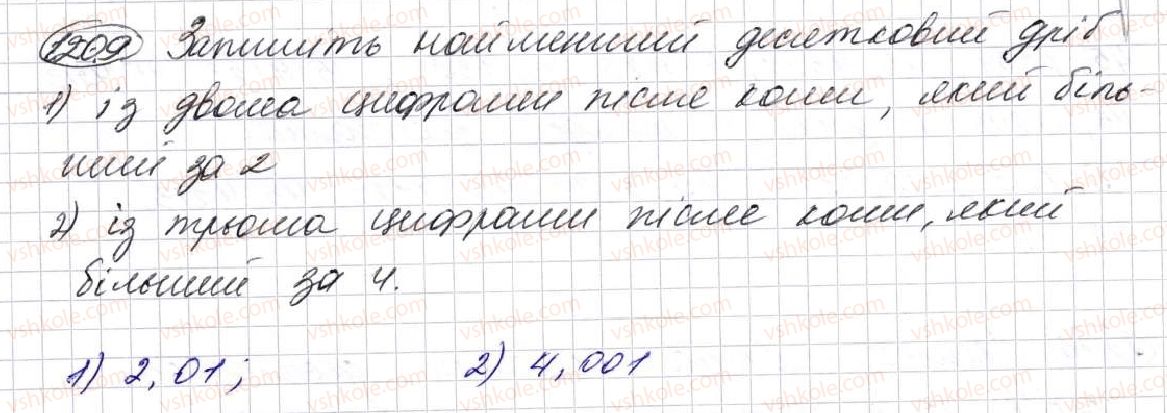 1209 Запишіть найменший десятковий дріб
1) із двома цифрами після коми, який біль-
ший за 2
2) із трьома цифрами після коми, який
більший за 4.
1) 2,01; 2) 4,001